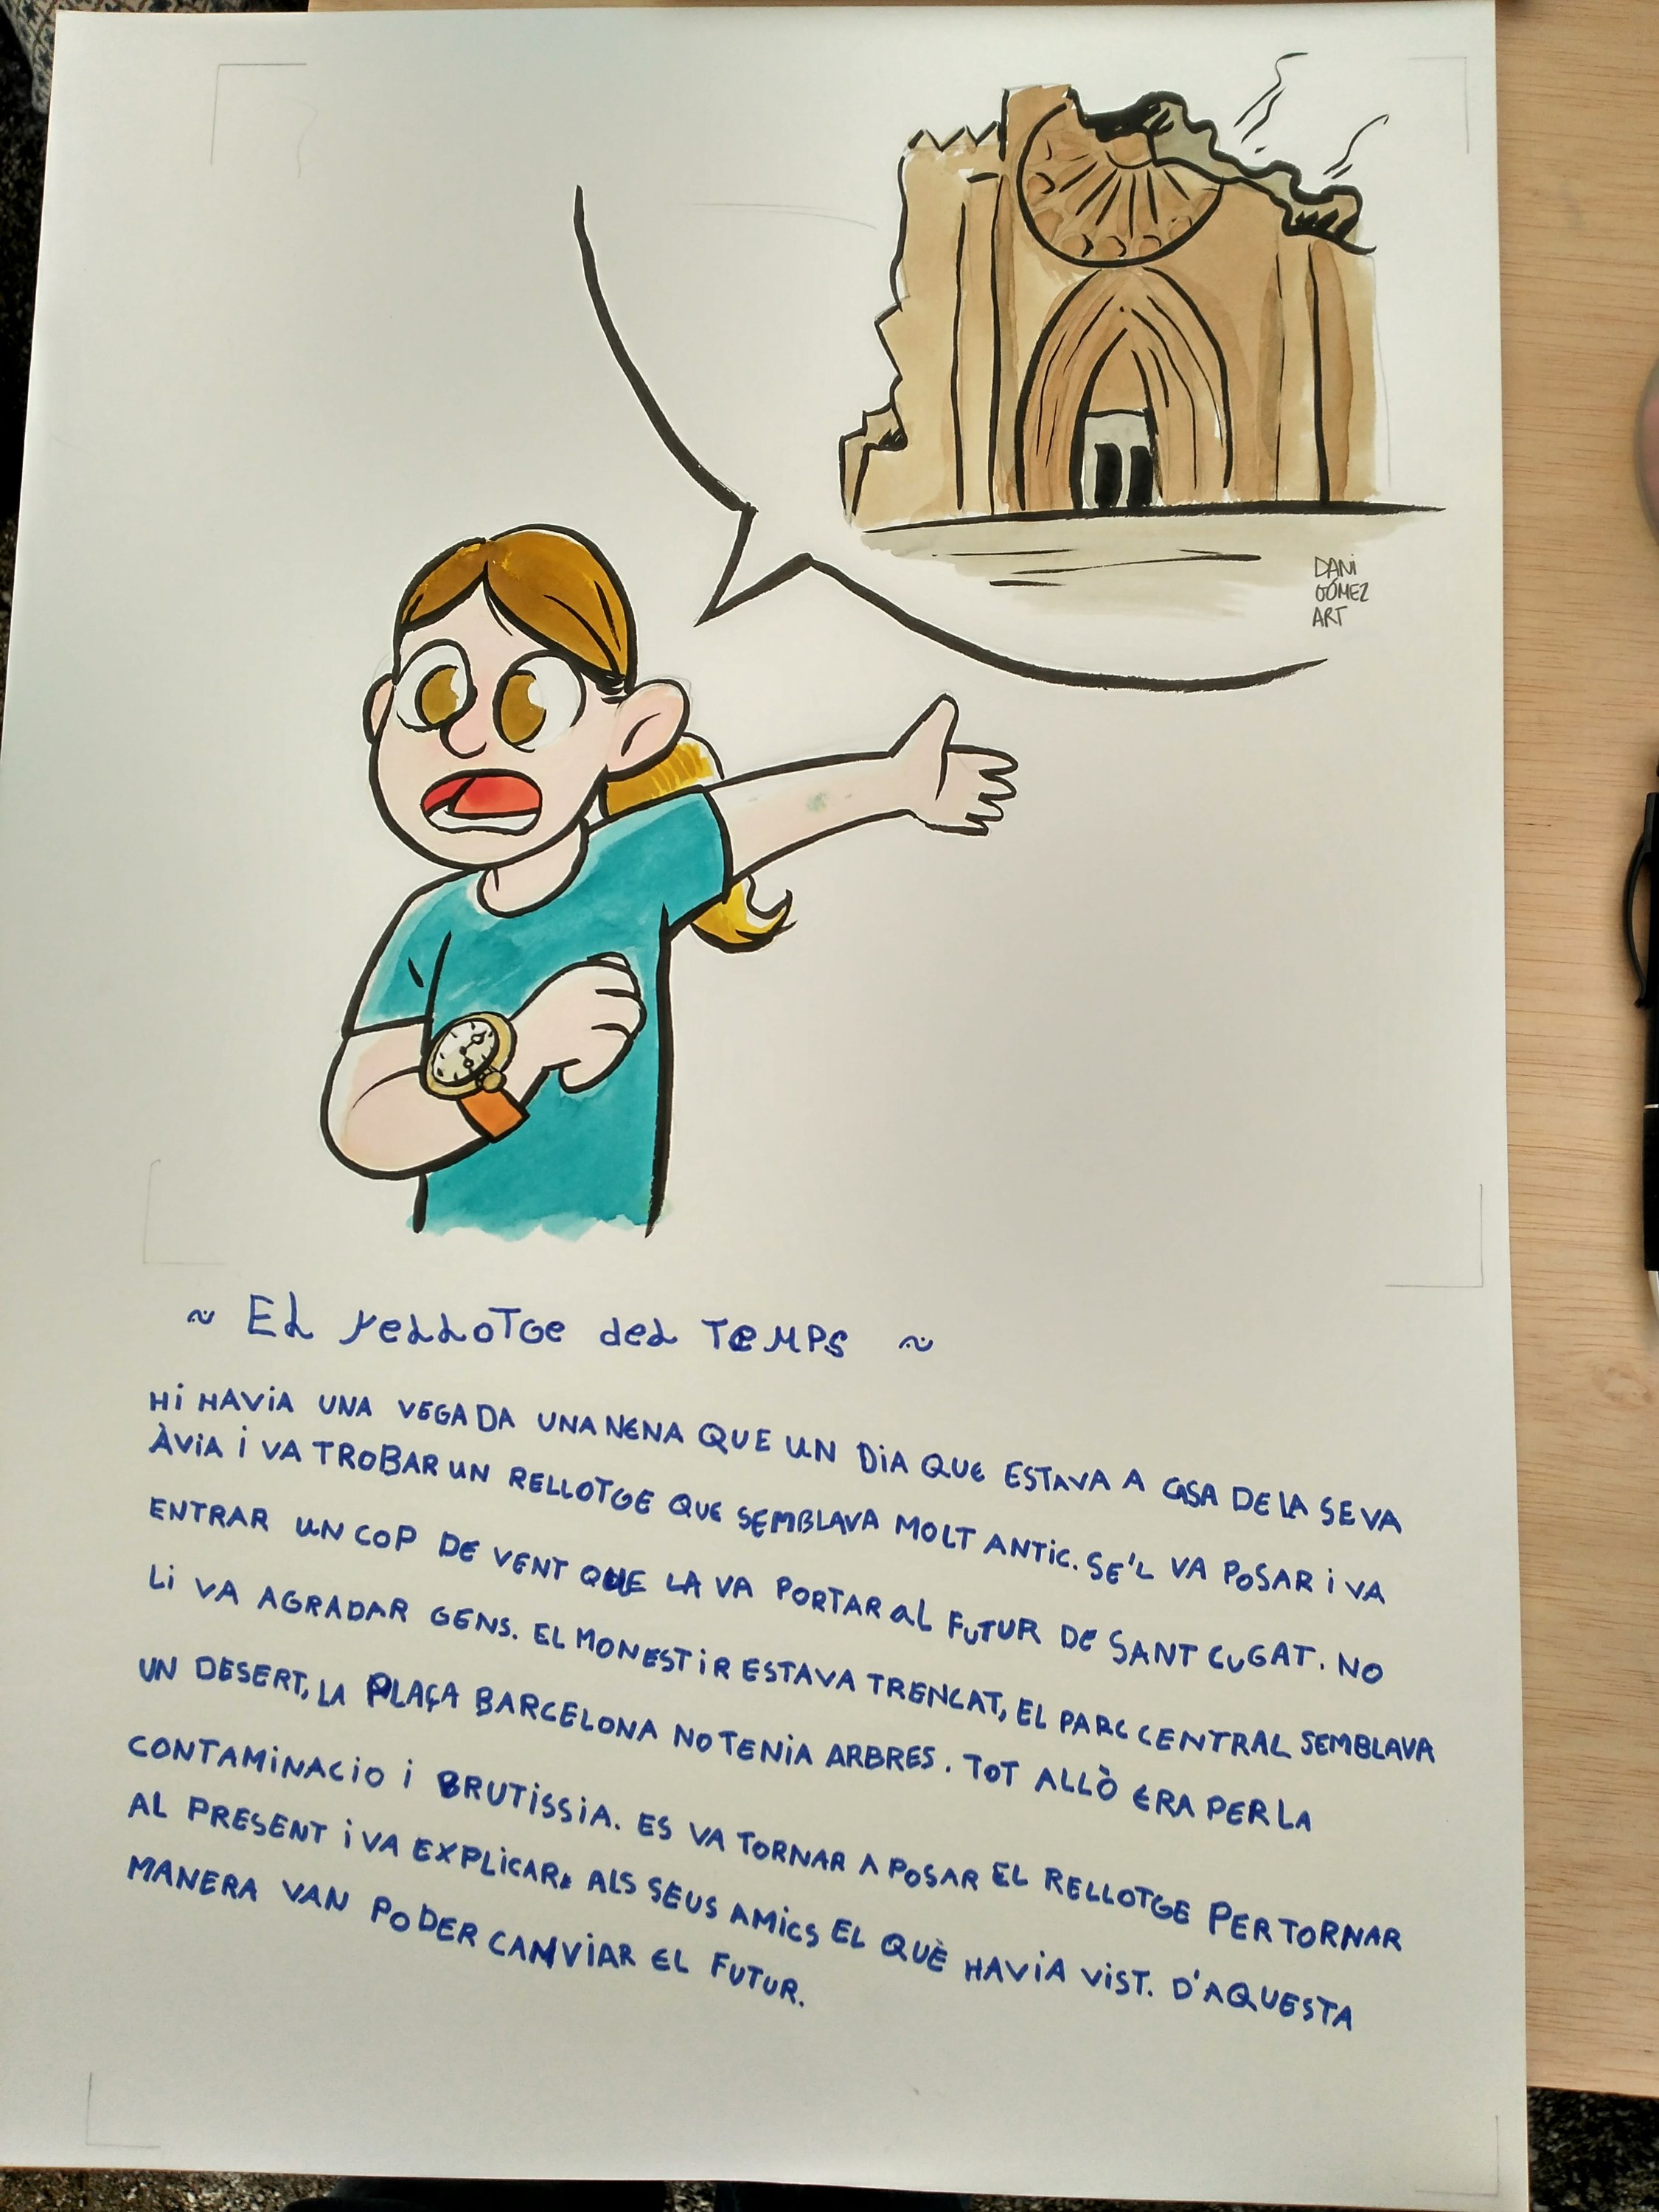 DANI
GÓMEZ
ART
~ El rellotge del temps ~
HI HAVIA UNA VEGADA UNA NENA QUE UN DIA QUE ESTAVA A CASA DE LA SEVA
ÀVIA I VA TROBAR UN RELLOTGE QUE SEMBLAVA MOLT ANTIC. SE'L VA POSAR I VA
ENTRAR UN COP DE VENT QUE LA VA PORTAR AL FUTUR DE SANT CUGAT. NO
LI VA AGRADAR GENS. EL MONESTIR ESTAVA TRENCAT, EL PARC CENTRAL SEMBLAVA
UN DESERT, LA PLAÇA BARCELONA NO TENIA ARBRES. TOT ALLÒ ERA PER LA
CONTAMINACIO I BRUTISSIA. ES VA TORNAR A POSAR EL RELLOTGE PER TORNAR
AL PRESENT I VA EXPLICAR ALS SEUS AMICS EL QUÈ HAVIA VIST. D'AQUESTA
MANERA VAN PODER CANVIAR EL FUTUR.